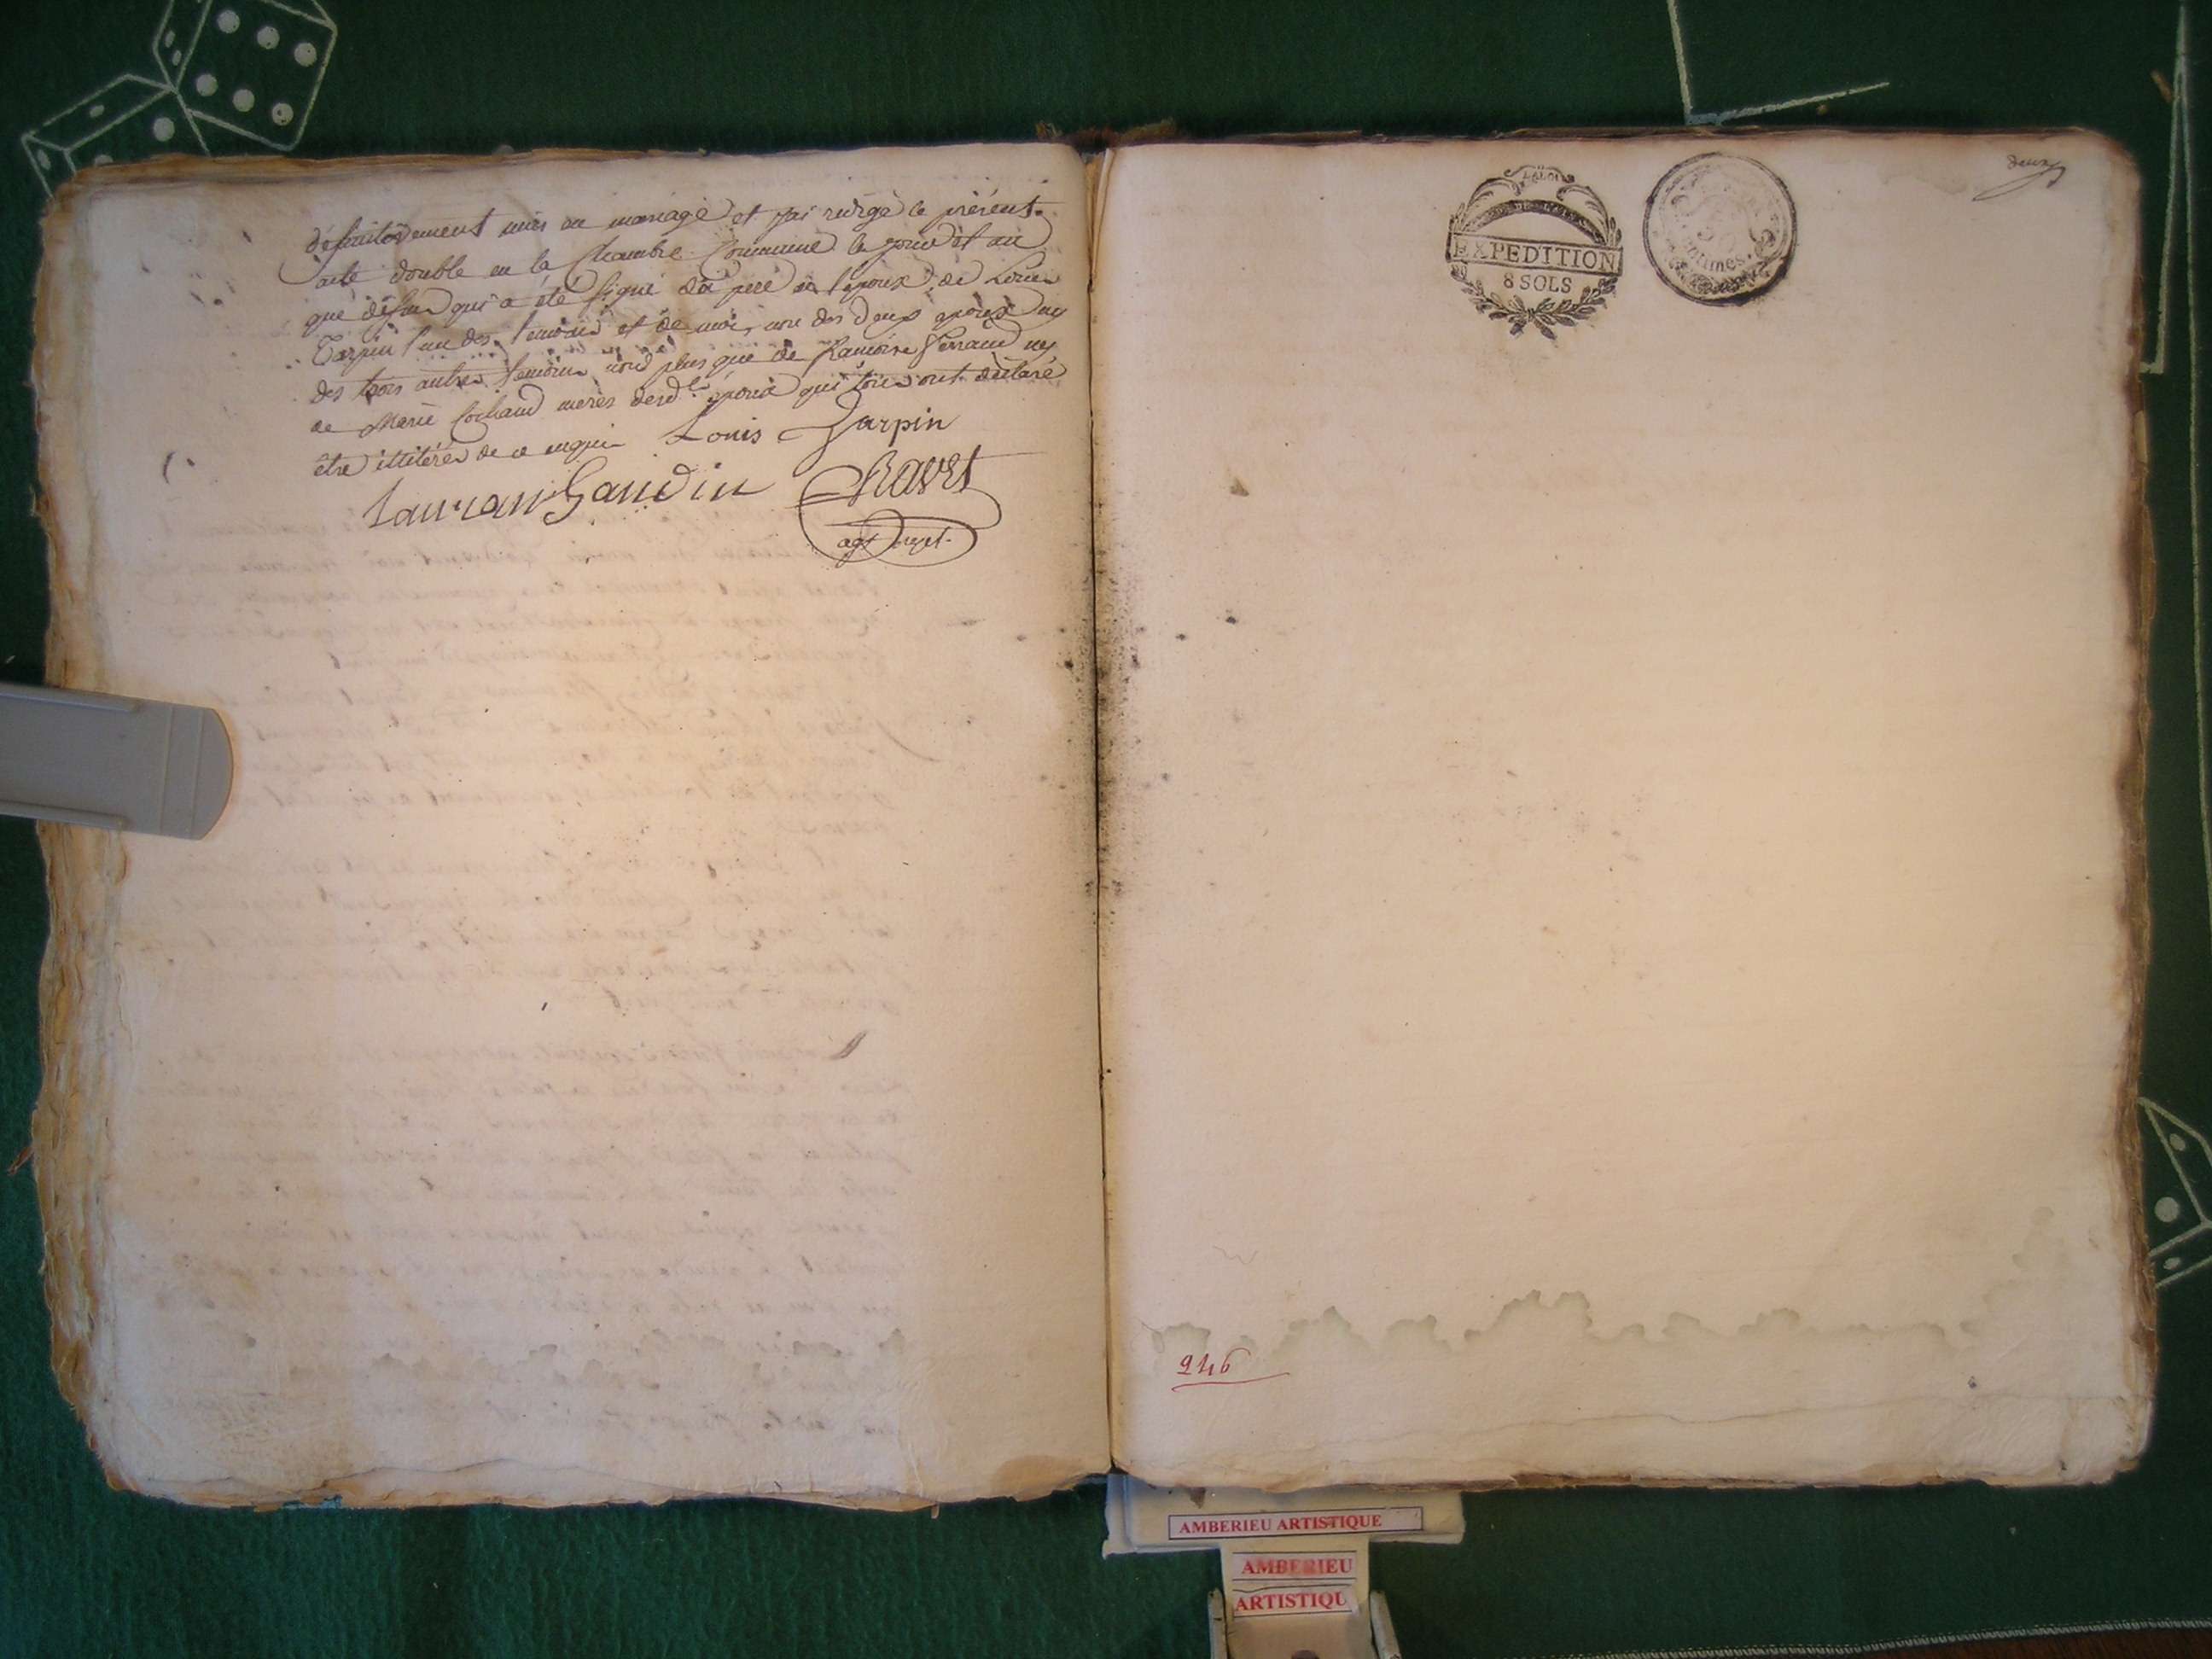 définitivement unis en mariage et j'ai rédigé le présent
acte double en la Chambre Commune le jour et an
que dessus qui a été signé du père de l'époux, de Louis
Tarpin l'un des temoins et de moi, non des deux époux ny
des trois autres temoins non plus que de ferrand ny
de Marie Cochaud mères desd. époux qui tous ont déclaré
être illitérés de ce enquis Louis Jarpin
Lauran Gaudin Ravet
agt
EXPEDITION
8 SOLS
50
centimes.
deux
246
AMBERIEU ARTISTIQUE
AMBERIEU
ARTISTIQU